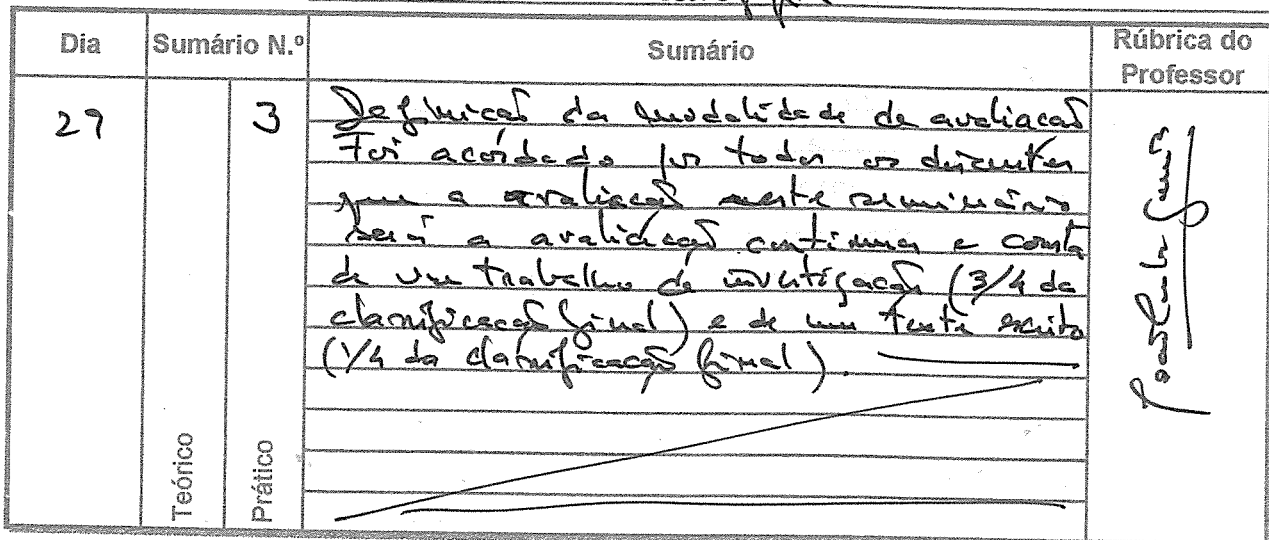 Dia Sumário N.º Sumário Rúbrica do Professor
29 3 Definição da modalidade de avaliação
Foi acordado por todos os discentes
que a avaliação neste seminário
será a avaliação contínua e consta
de um trabalho de investigação (3/4 da
classificação final) e de um teste escrito
(1/4 da classificação final).
Teórico
Prático